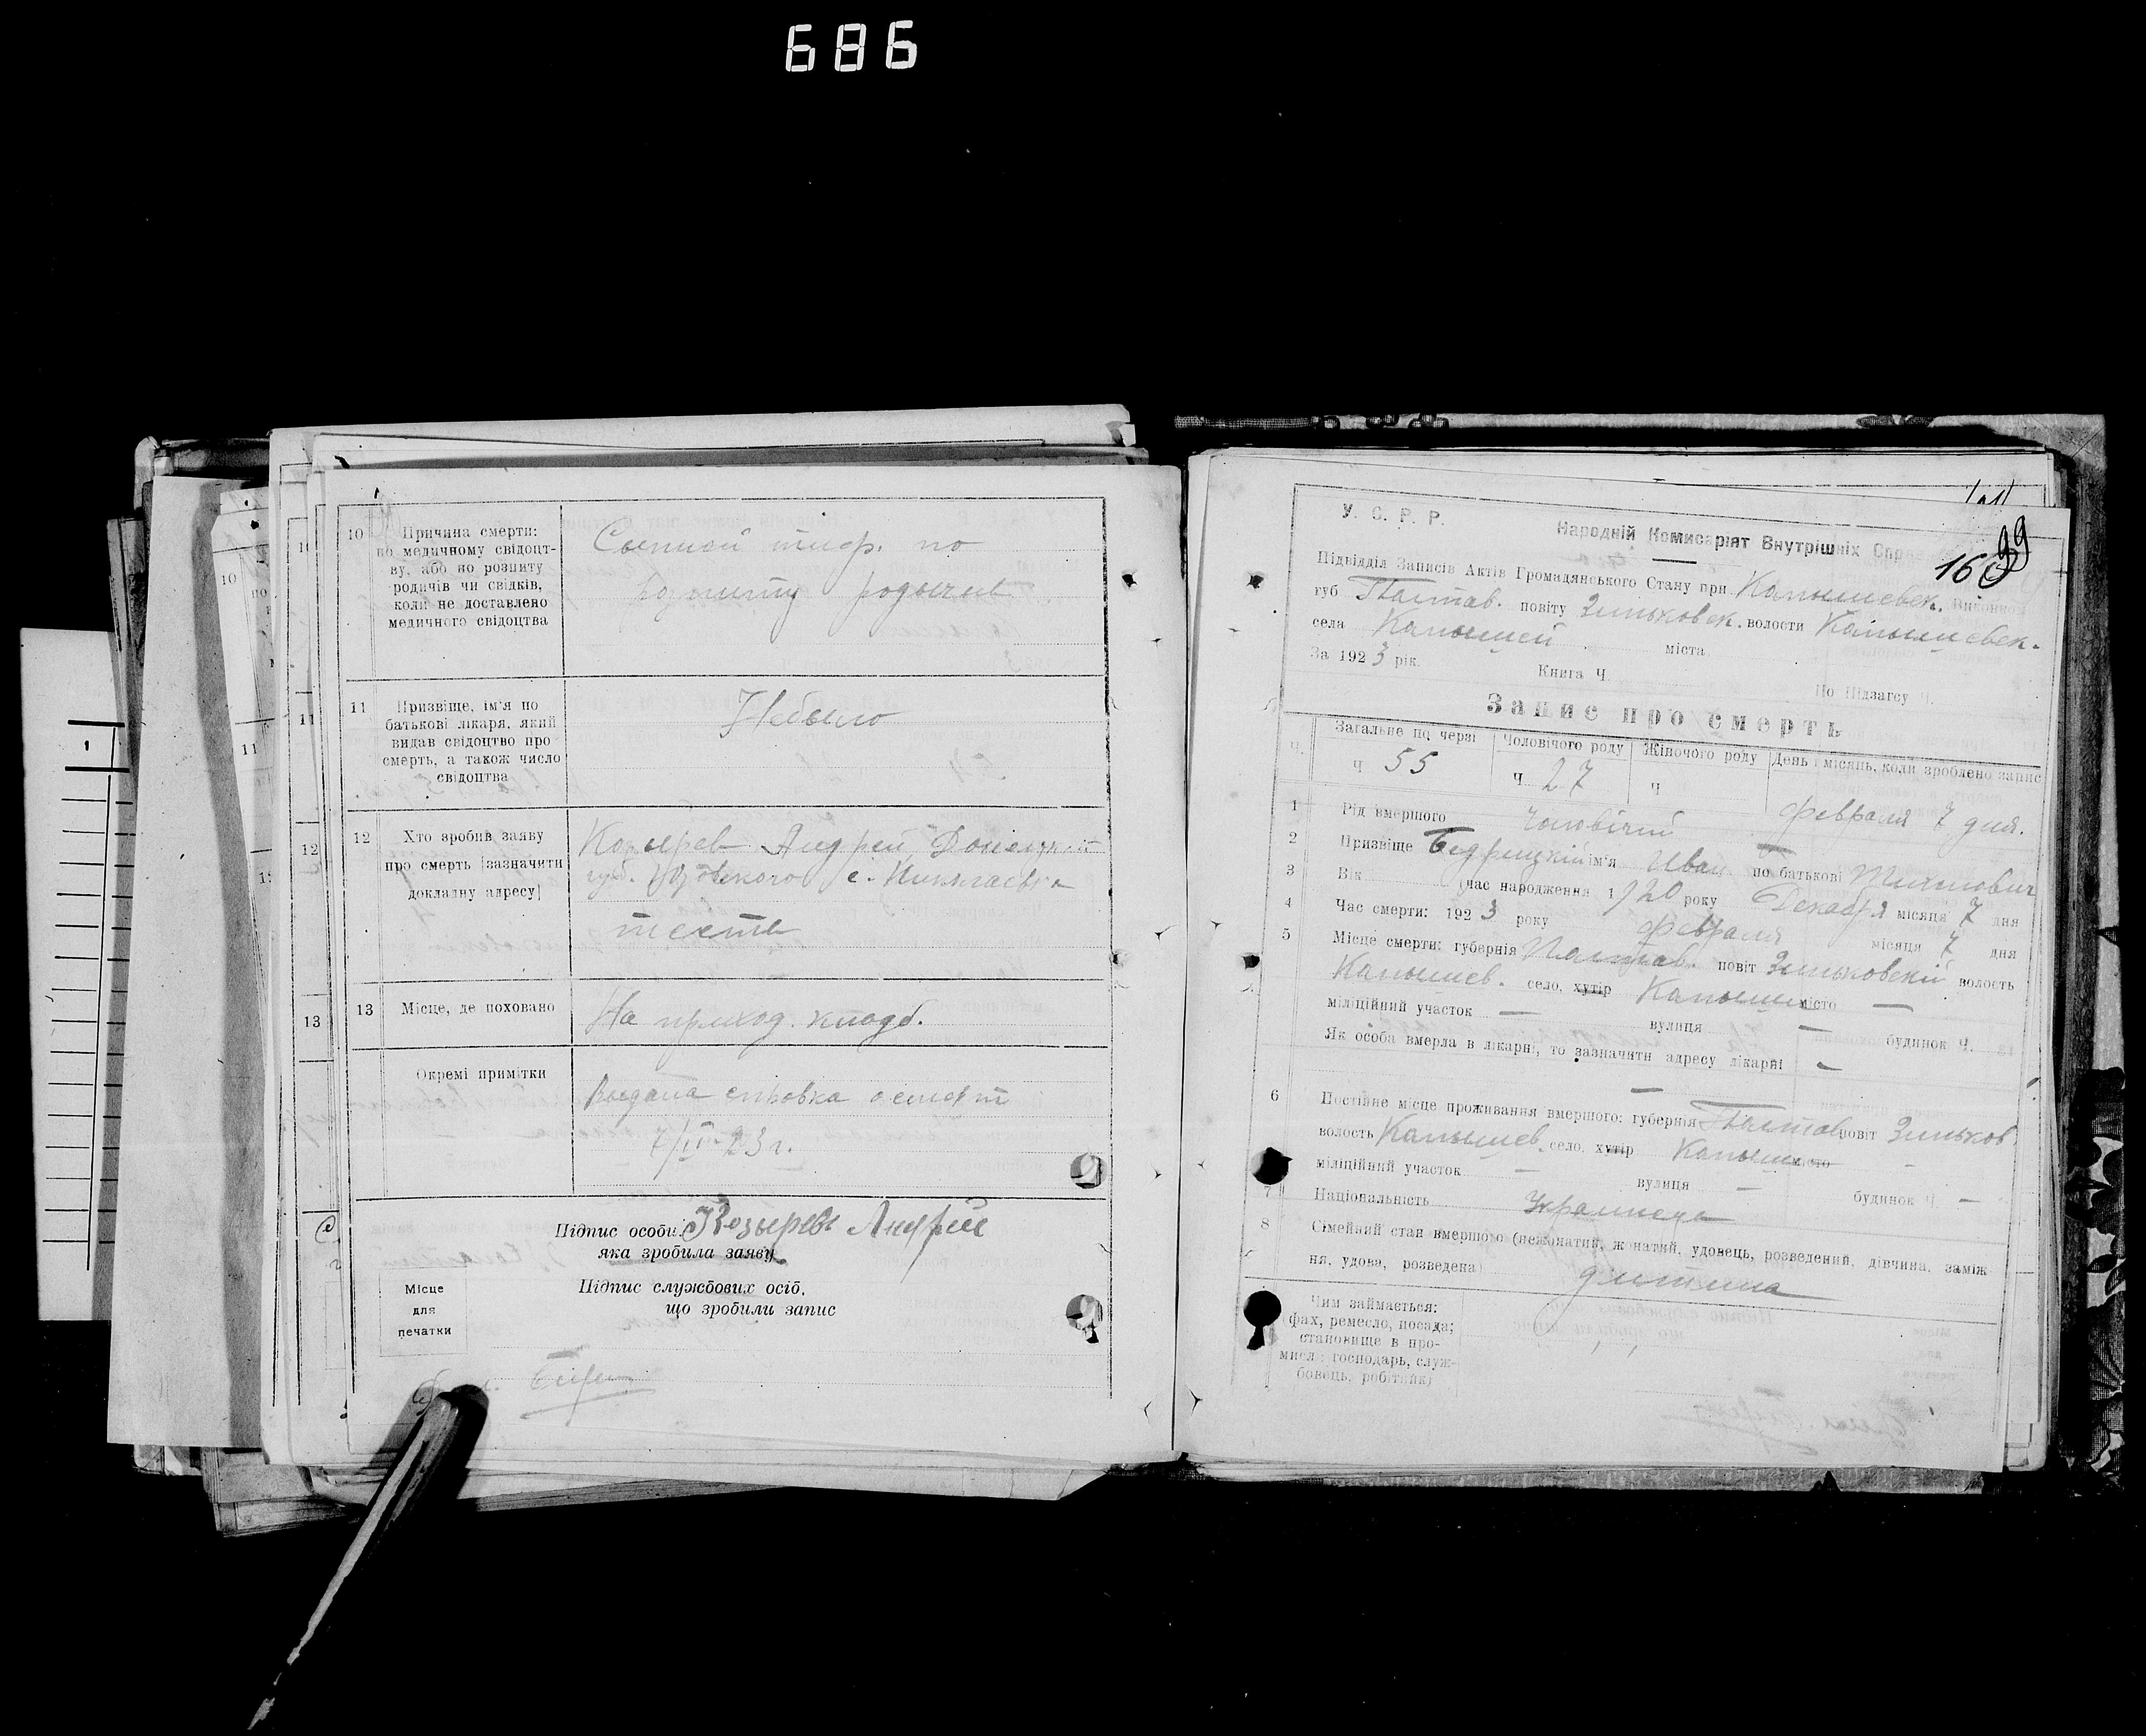 686
10 Причина смерти:
по медичному свідоцт-
ву, або по розпиту
родичів чи свідків,
коли не доставлено
медичного свідоцтва
Сыпной тиф. по
розпиту родычив
11 Призвіще, ім'я по
батькові лікаря, який
видав свідоцтво про
смерть, а також число
свідоцтва
Небыло
12 Хто зробив заяву
про смерть (зазначити
докладну адресу)
Козырев Андрей Донецкой
губ. Юзовского с. Николаевка
тесть
13 Місце, де поховано
На приход. кладб.
Окремі примітки
Выдана справка о смерт
7/II-23 г.
Підпис особи Козыревъ Андрей
яка зробила заяву
Підпис службових осіб,
що зробили запис
Місце
для
печатки
10
11
12
13
99
160
У. С. Р. Р.
Народній Комисаріят Внутрішніх Справ
Підвідділ Записів Актів Громадянського Стану при Камышевск. Виконко
губ Полтав. повіту Зиньковск. волости Камышевск.
села Камышей міста
За 1923 рік. Книга Ч. По Підзагсу Ч.
Запис про смерть
Загальне по черзі Чоловічого роду Жіночого роду День і місяць, коли зроблено запис
Ч 55 Ч 27 Ч Февраля 7 дня.
1 Рід вмершого Чоловічий
2 Призвіще Бедрицкій ім'я Иван по батькові Тихонович
3 Вік (час народження 1920 року Декабря місяця 7 дня
4 Час смерти: 1923 року Февраля місяця 7 дня
5 Місце смерти: губернія Полтав. повіт Зиньковскій волость
Камышев. село, хутір Камыши місто —
міліційний участок — вулиця — будинок Ч.
Як особа вмерла в лікарні, то зазначити адресу лікарні —
6 Постійне місце проживання вмершого: губернія Полтав повіт Зиньков
волость Камышев. село, хутір Камыши місто —
міліційний участок — вулиця — будинок Ч —
7 Національність Украинець
8 Сімейний стан вмершого (нежонатий, жонатий, удовець, розведений, дівчина, заміж
ня, удова, розведека) дитина
Чим займається:
фах, ремесло, посада;
становище в про-
мислі: господарь, служ-
бовець, робітник)